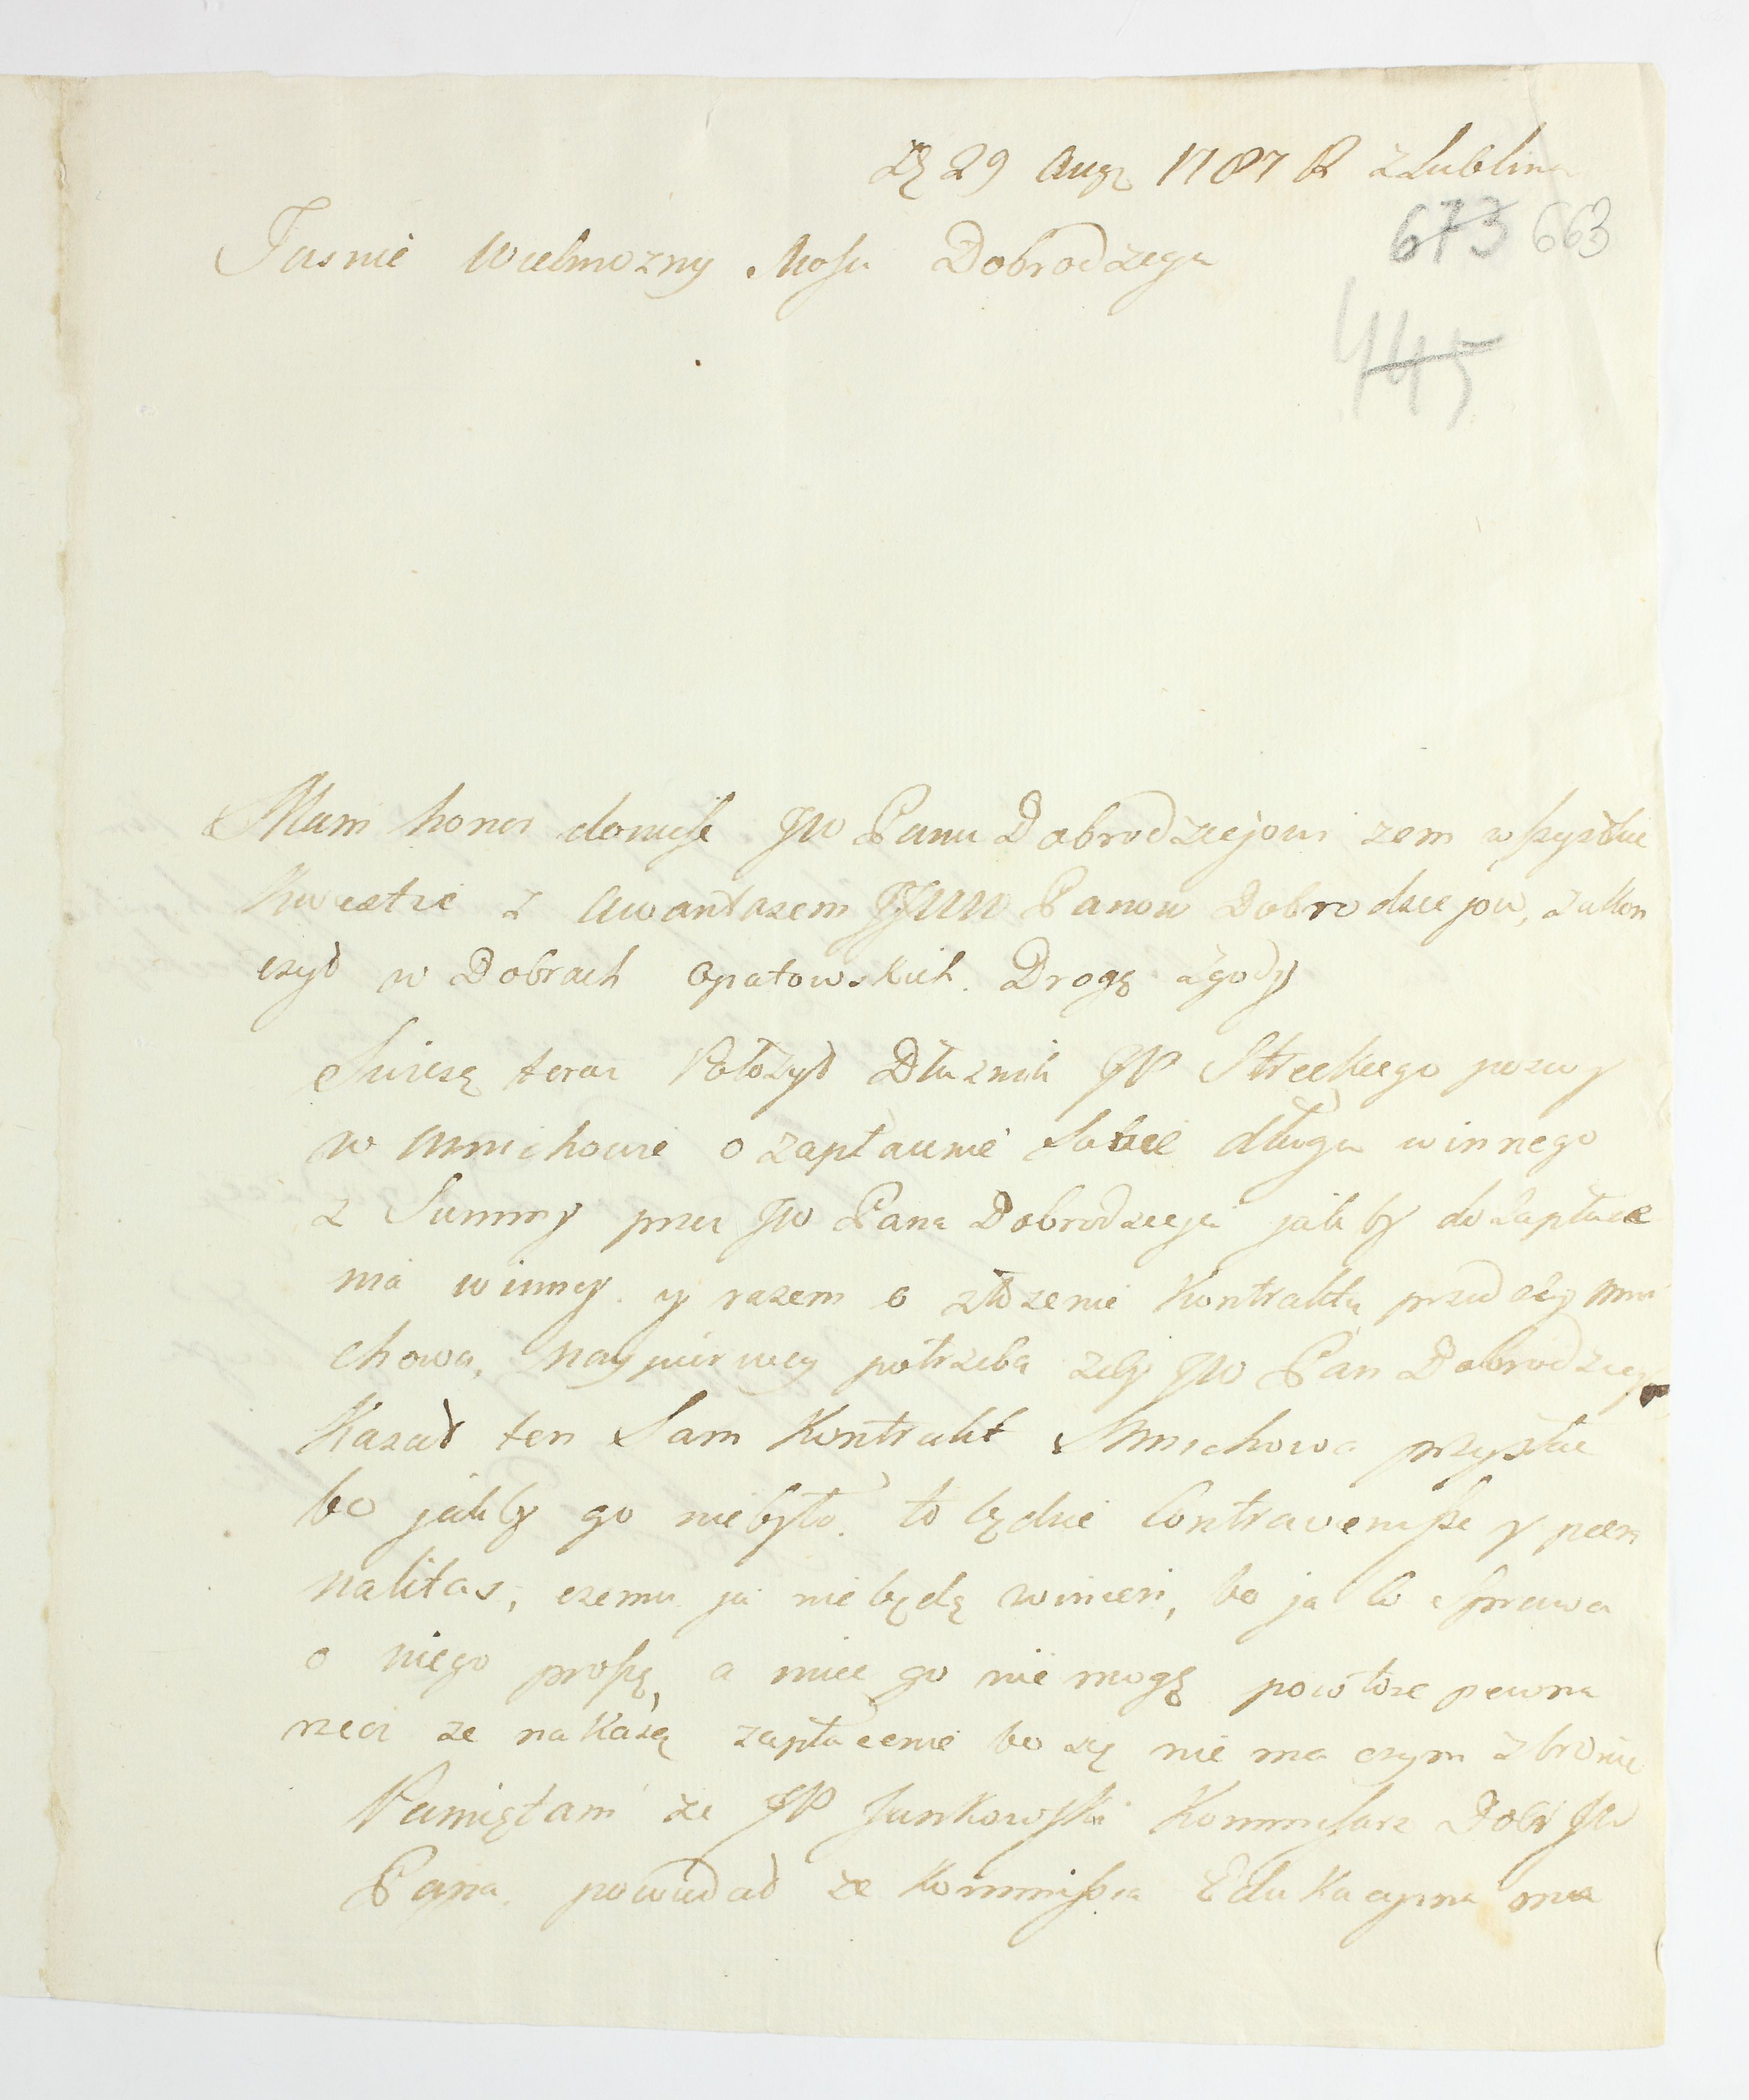 Dẹ 29 Augę 1787 R z Lublina
673 663
Jasnie Wielmozny Mosci Dobrodzeju
445
Mam honor doniesc JW Panu Dobrodziejowi zem wszystkie
Kwestie z Awantazem JJWW Panow Dobrodziejow, zakon
czył w Dobrach Opatowskich. Drogą zgody
teraz Połozył Dłuznik JP Streckiego pozwy
w o zapłacenie Sobie długu winnego
z Summy przez JW Pana Dobrodzieja jakby do zapłace
nia winney. y razem o złozenie Kontraktu przedazy Mni
chowa, naypierwey potrzeba zeby JW Pan Dobrodziey
Kazał ten Sam Kontrakt Mnichowa przysłac
bo jakby go niebyło. to będzie Contravenisse y poen
nalitas, czemu ja niebędę winien, bo ja co sprawa
o niego proszę, a miec go nie mogę powtore pewna
rzecz ze nakazą zapłacenie bo się nie ma czym zbronic
Pamiętam ze JP Junkowski Kommisarz Dobr JW
Pana. powiedał ze Kommissia Edukacyina ma